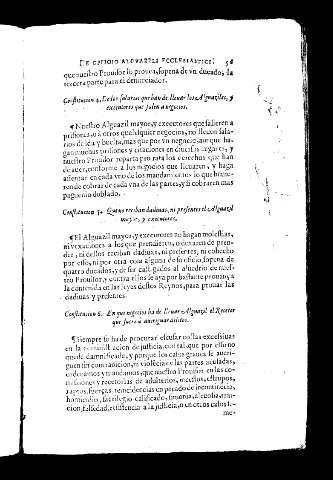 DE OFICIO ALGVAZILS ECCLESIASTICI. 56
que nuestro Prouisor lo prouea, sopena de vn ducado, la
tercera parte para el denunciador.
Constitucion 4. De los salarios que han de lleuar los Alguaziles, y
executores que salen a negocios.
¶ Nuestro Alguazil mayor, y executores que salieren a
prisiones, o à otros qualesquier negocios, no lleuen sala-
rios de ida y buelta, mas que por vn negocio, aunque ha-
gan muchas prisiones y citaciones en diuersos lugares, y
nuestro Prouisor reparta pro rata los derechos que han
de auer, conforme a los negocios que lleuaren, y haga
assentar en cada vno de los mandamientos lo que huuie-
ren de cobrar de cada vna de las partes, y si cobraren mas
paguenlo doblado.
Constitucion 5. Que no reciban dadiuas, ni presentes el Alguazil
mayor, y executores.
¶ El Alguazil mayor, y executores no hagan molestias,
ni vexaciones a los que prendieren, o dexaren de pren-
der, ni dellos reciban dadiuas, ni presentes, ni cohecho
por ello, ni por otra cosa alguna de su oficio, sopena de
quatro ducados, y de ser castigados al aluedrio de nues-
tro Prouisor, y contra ellos se aya por bastante prouança,
la contenida en las leyes destos Reynos, para prouar las
dadiuas y presentes.
Constitucion 6. En que negocios ha de lleuar Alguazil el Receptor
que fuere à aueriguar delitos.
¶ Siempre se ha de procurar escusar costas excessiuas
en la administracion de justicia, con tal, que por esto no
quede damnificada, y porque los casos graues se aueri-
guen sin contradicion, ni violécia de las partes acusadas,
ordenamos y mandamos, que nuestro Prouisor en las co-
missiones y recetorias de adulterios, incestos, estupros,
raptos, fuerças, remeidencias en pecado de incontinencia,
homicidio, sacrilegio calificado, simonia, alcoholia, tem-
cion, falsedad, resistencia a la justicia, o en otros casos se-
me-